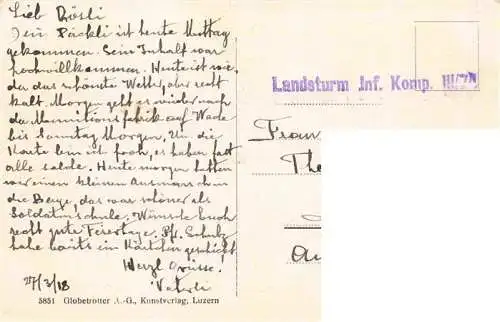 Lieb Rösli
Dein Päckli ist heute Mittag
gekommen. Sein Inhalt war
hochwillkommen. Heute ist wie-
da das schönste Wetter, aber recht
kalt. Morgen geht es wieder nach
da Munitionsfabrik auf Wache
bis Sonntag Morgen, Um die
Karte bin ist froh, es haben fast
alle solche. Heute morgen hatten
wir einen kleinen Ausmarsch in
die Berge, das war schöner als
Soldatenschule. Wünsche Euch
recht gute Feiertage. Fr. Schulz
habe bereits ein Kärtchen geschickt.
Herzl. Grüsse.
Vaterli
27/3/18
5851 Globetrotter A.-G., Kunstverlag, Luzern
Landsturm Inf. Komp. III/70
Frau